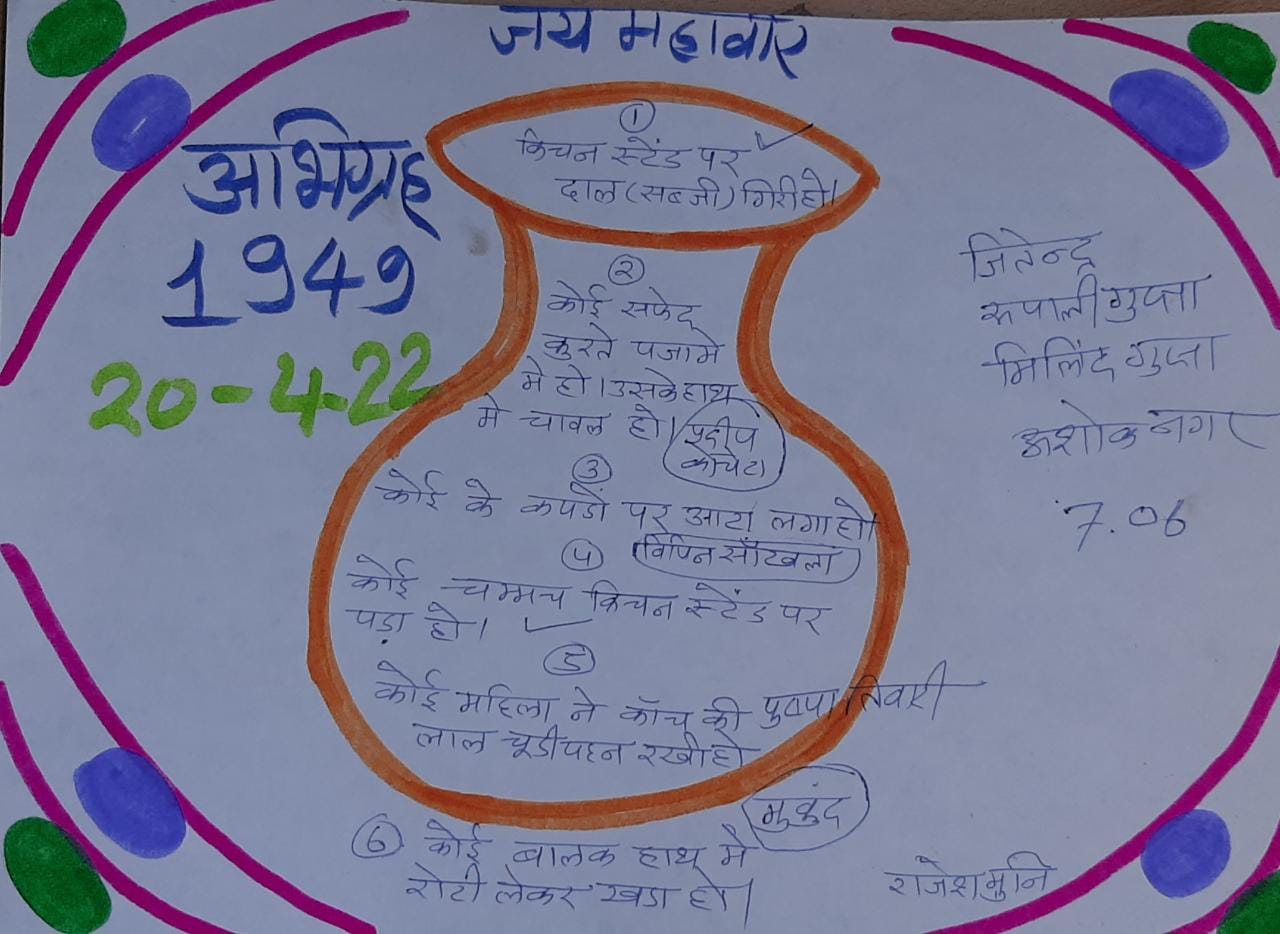 जय महावीर
अभिग्रह
1949
20-4-22
①
किचन स्टेंड पर ✓
दाल (सब्जी) गिरी हो।
②
कोई सफेद
कुरते पजामे
मे हो। उसके हाथ
मे चावल हो। प्रदीप
कोचेटा
③
कोई के कपडों पर आटा लगा हो।
④ विपिन साँखला
कोई चम्मच किचन स्टेंड पर
पड़ा हो। ✓
⑤
कोई महिला ने काँच की पुष्पा तिवारी
लाल चूडी पहन रखी हो
मुकुंद
⑥ कोई बालक हाथ मे
रोटी लेकर खडा हो।
जितेन्द्र
रूपाली गुप्ता
मिलिंद गुप्ता
अशोक नगर
7.06
राजेश मुनि